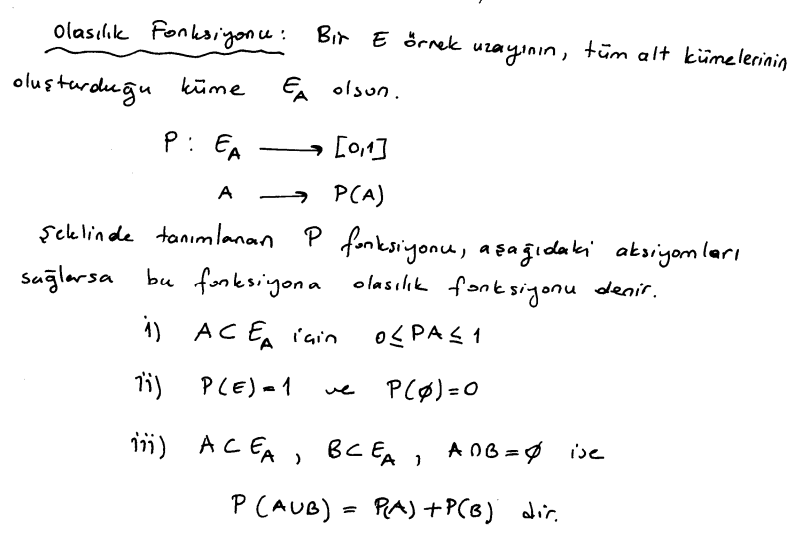 Olasılık Fonksiyonu: Bir E örnek uzayının, tüm alt kümelerinin
oluşturduğu küme E_A olsun.
P : E_A → [0,1]
A → P(A)
Şeklinde tanımlanan P fonksiyonu, aşağıdaki aksiyomları
sağlarsa bu fonksiyona olasılık fonksiyonu denir.
i) A ⊂ E_A için 0 ≤ PA ≤ 1
ii) P(E) = 1 ve P(∅) = 0
iii) A ⊂ E_A , B ⊂ E_A , A ∩ B = ∅ ise
P (A∪B) = P(A) + P(B) dir.